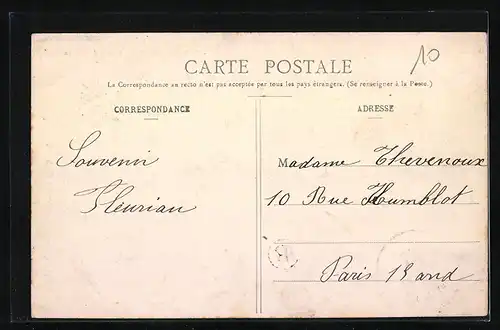 10
CARTE POSTALE
La Correspondance au recto n'est pas acceptée par tous les pays étrangers. (Se renseigner à la Poste.)
CORRESPONDANCE
ADRESSE
Souvenir
Fleurian
Madame Thevenoux
10 Rue Humblot
Paris 15 and